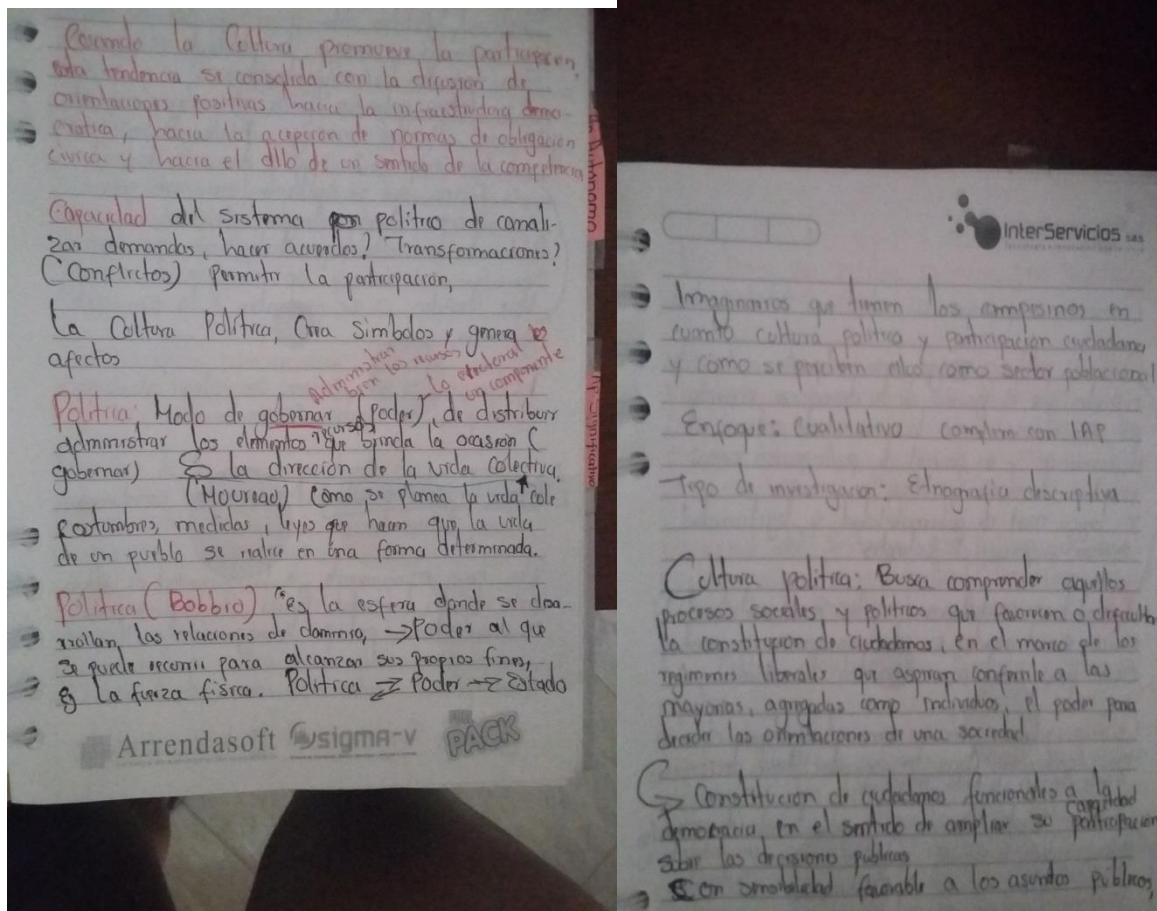 Cuando la Cultura promueve la participacion,
esta tendencia se consolida con la difusion de
orientaciones positivas hacia la infraestructura demo-
cratica, hacia la acepcion de normas de obligacion
civica y hacia el dllo de un sentido de la competencia
Capacidad del sistema politico de canali-
zar demandas, hacer acuerdos? Transformaciones?
(Conflictos) permitir la participación,
La Cultura Política, Crea simbolos y genera
afectos
Administrar
bien los recursos
lo electoral
un componente
Politica: Modo de gobernar (poder), de distribuir
administrar los elementos recursos que brinda la ocasión (
gobernar) Es la dirección de la vida colectiva.
(Moureao) como se planea la vida cole
Costumbres, medidas, leyes que hacen que la vida
de un pueblo se realice en una forma determinada.
Politica (Bobbio), "es la esfera donde se desa-
rrollan las relaciones de dominio, → Poder al que
se puede recurrir para alcanzar sus propios fines,
es la fuerza física. Politica Poder Estado
Arrendasoft sigma-v PACK
Autonomo
Ap. Significativo
InterServicios S.A.S
Imaginarios que tienen los campesinos en
cuanto cultura politica y participacion ciudadana
y como se perciben ellos como sector poblacional
Enfoque: Cualitativo complem con IAP
Tipo de investigacion: Etnografia descriptiva
Cultura politica: Busca comprender aquellos
procesos sociales y politicos que favorecen o dificulta
la constitución de ciudadanos, en el marco de los
regimenes liberales que aspiran conferirle a las
mayorias, agregadas como individuos, el poder para
decidir las orientaciones de una sociedad
Constitucion de ciudadanos funcionales a la
democracia, en el sentido de ampliar su capacidad participacion
sobre las decisiones publicas
con sensibilidad favorable a los asuntos publicos,